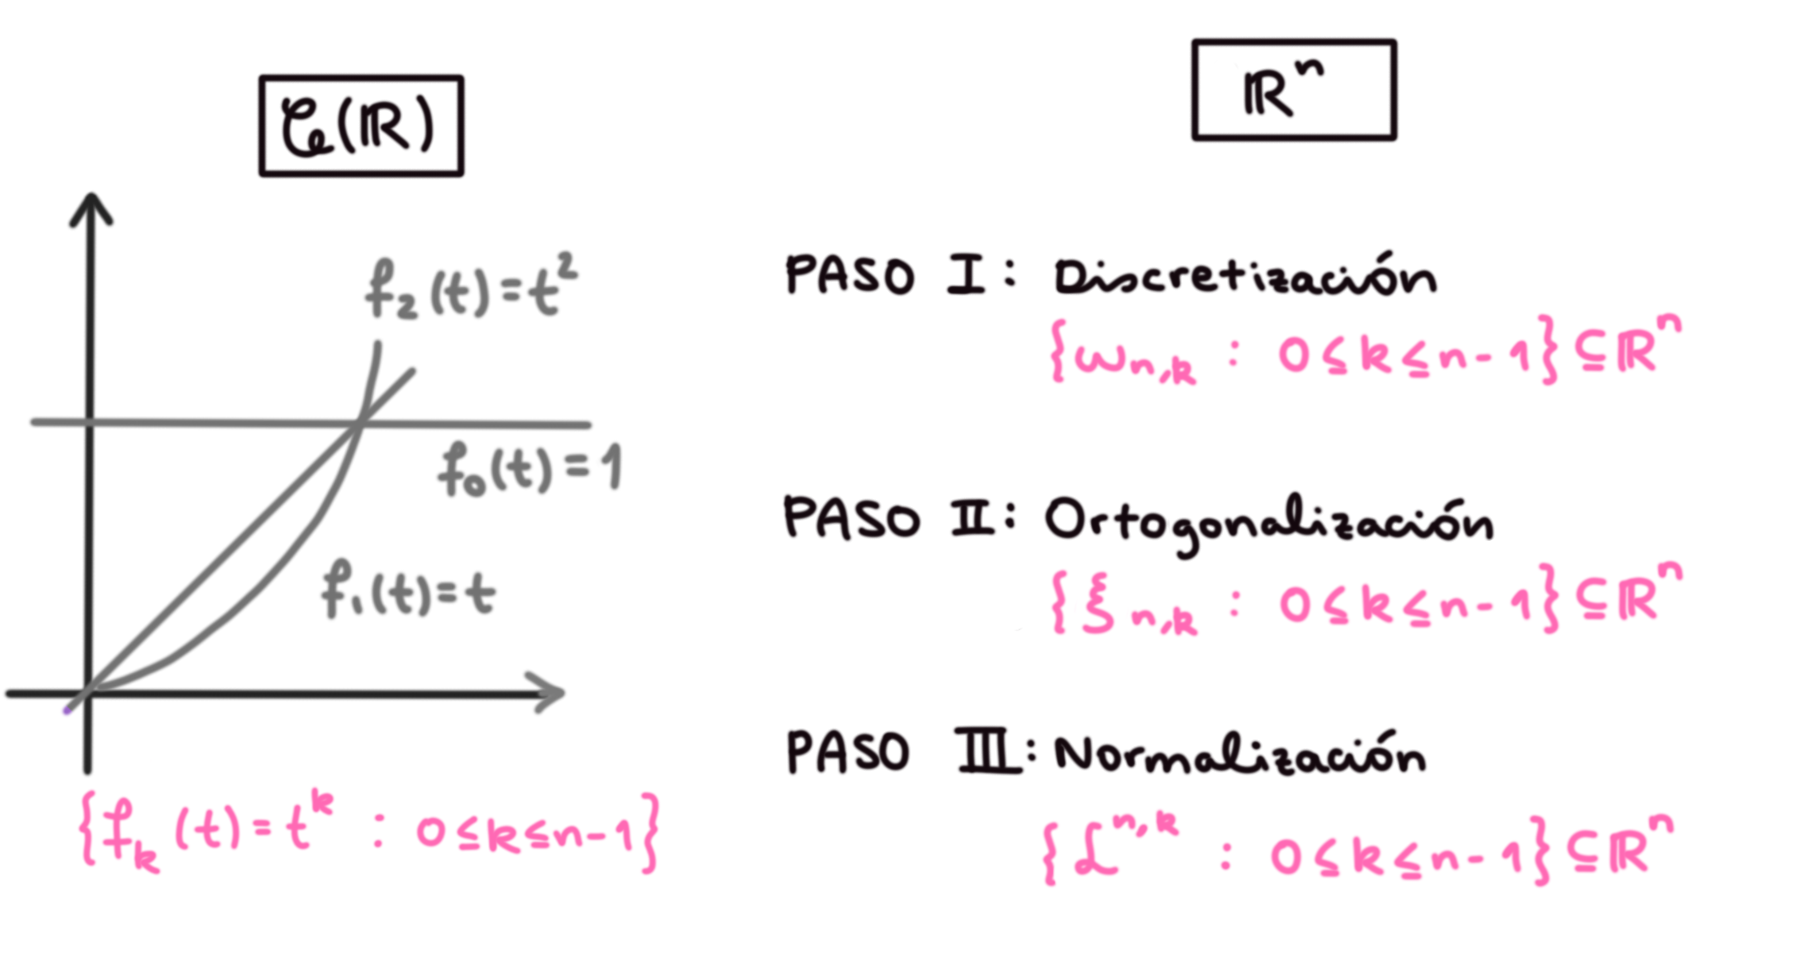 𝒞(ℝ)
f₂(t) = t²
f₀(t) = 1
f₁(t) = t
{f_k(t) = t^k : 0 ≤ k ≤ n-1}
ℝⁿ
PASO I: Discretización
{ω_{n,k} : 0 ≤ k ≤ n-1} ⊆ ℝⁿ
PASO II: Ortogonalización
{ξ_{n,k} : 0 ≤ k ≤ n-1} ⊆ ℝⁿ
PASO III: Normalización
{ℒ^{n,k} : 0 ≤ k ≤ n-1} ⊆ ℝⁿ